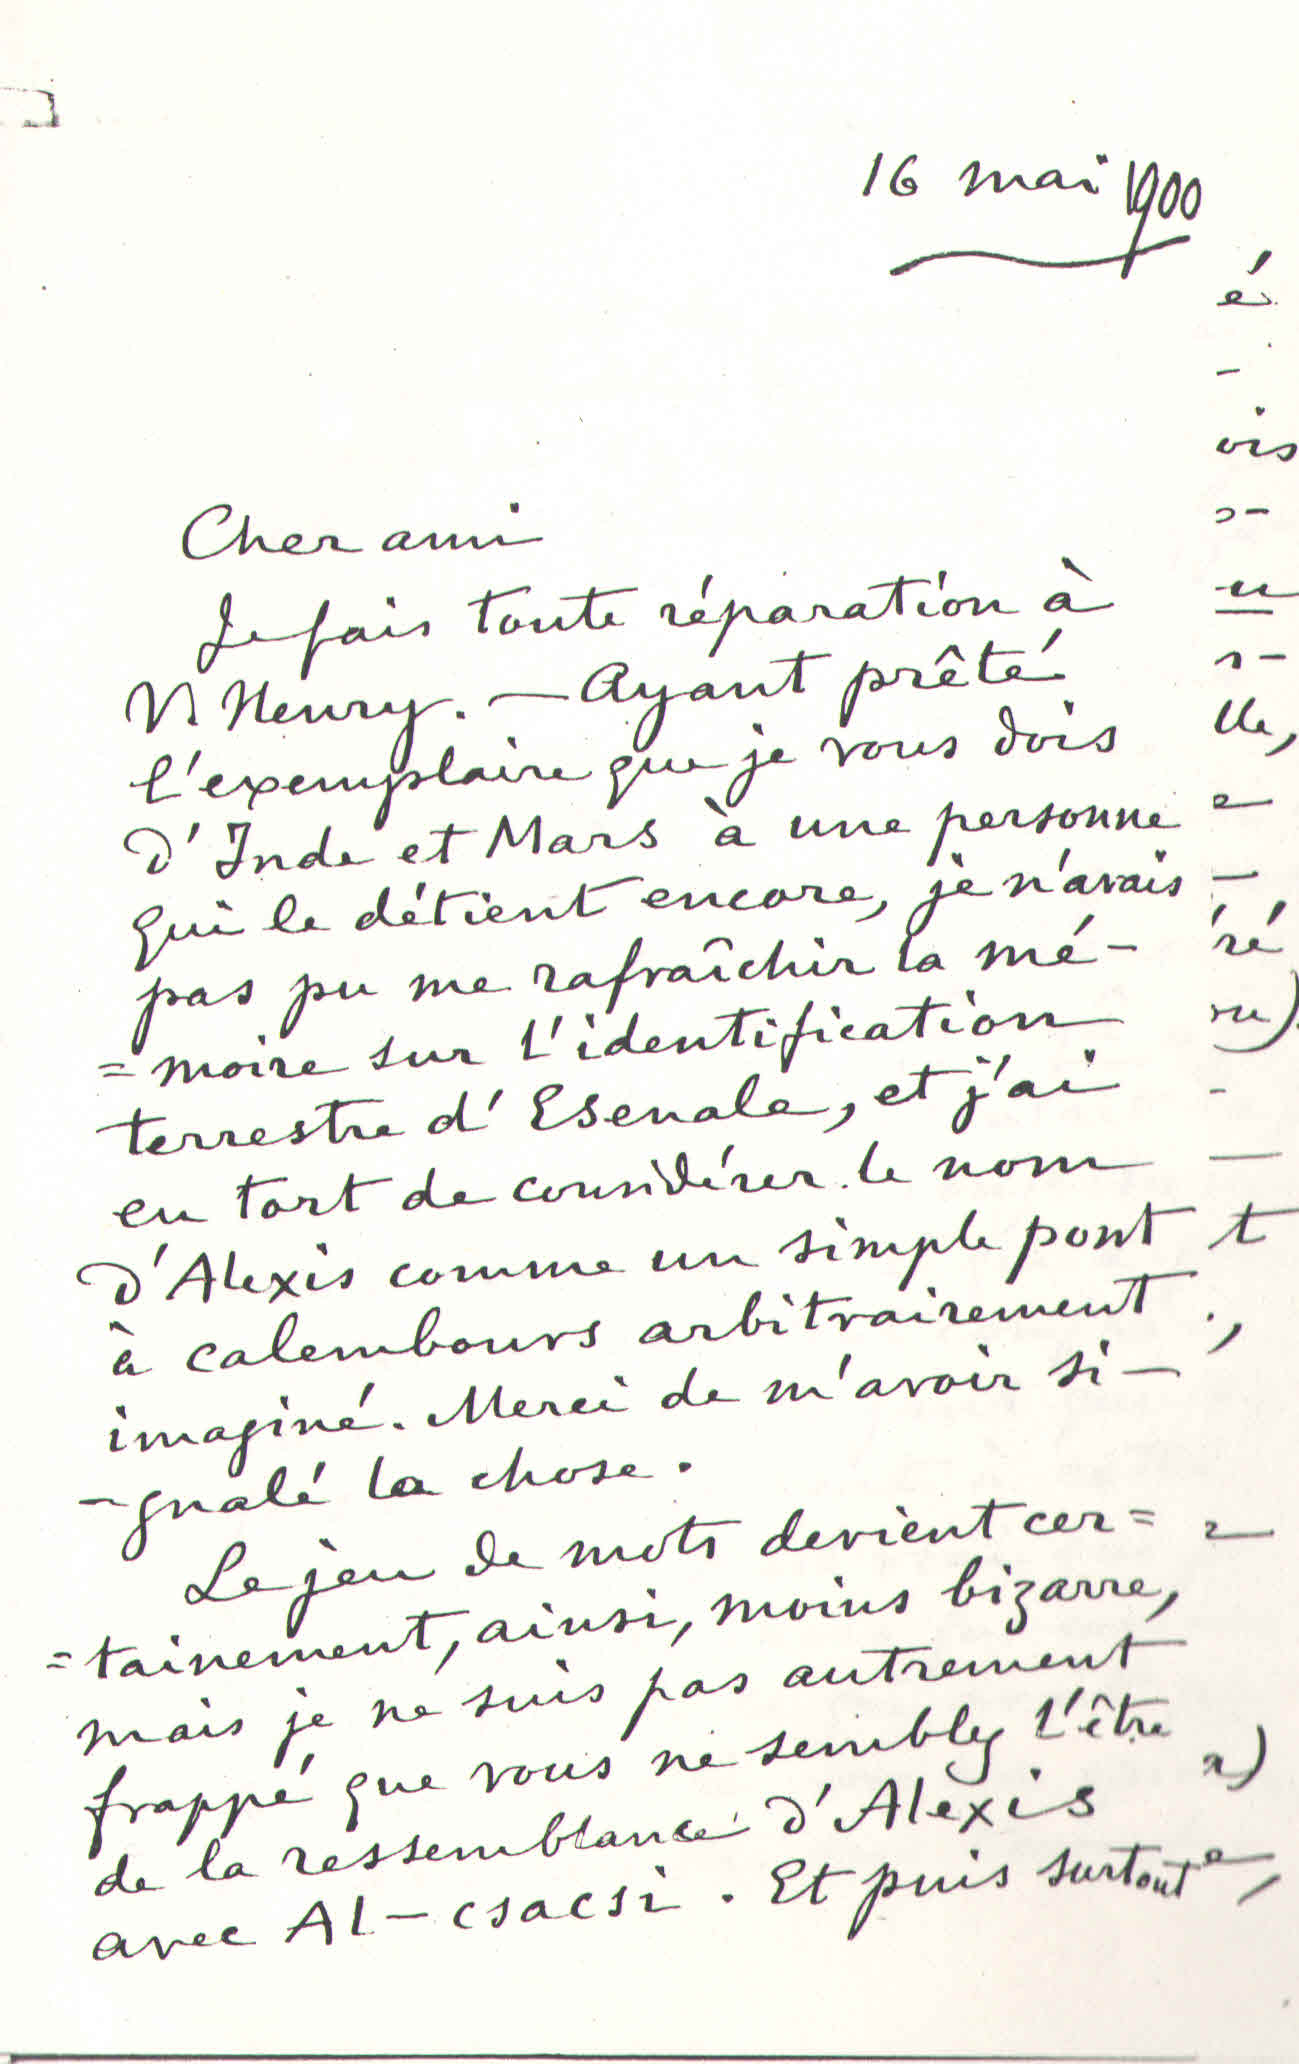 16 mai 1900
Cher ami
Je fais toute réparation à
V Henry. — Ayant prêté
l'exemplaire que je vous dois
d'Inde et Mars à une personne
qui le détient encore, je n'avais
pas pu me rafraîchir la mé-
=moire sur l'identification
terrestre d'Esenale, et j'ai
eu tort de considérer le nom
d'Alexis comme un simple pont
à calembours arbitrairement
imaginé. Merci de m'avoir si-
-gnalé la chose.
Le jeu de mots devient cer=
=tainement, ainsi, moins bizarre,
mais je ne suis pas autrement
frappé que vous ne semblez l'être
de la ressemblance d'Alexis
avec Al-csacsi. Et puis surtout
é
-
ois
u
r-
lle,
e
—
ré
ou)
-
—
t
.,
e,